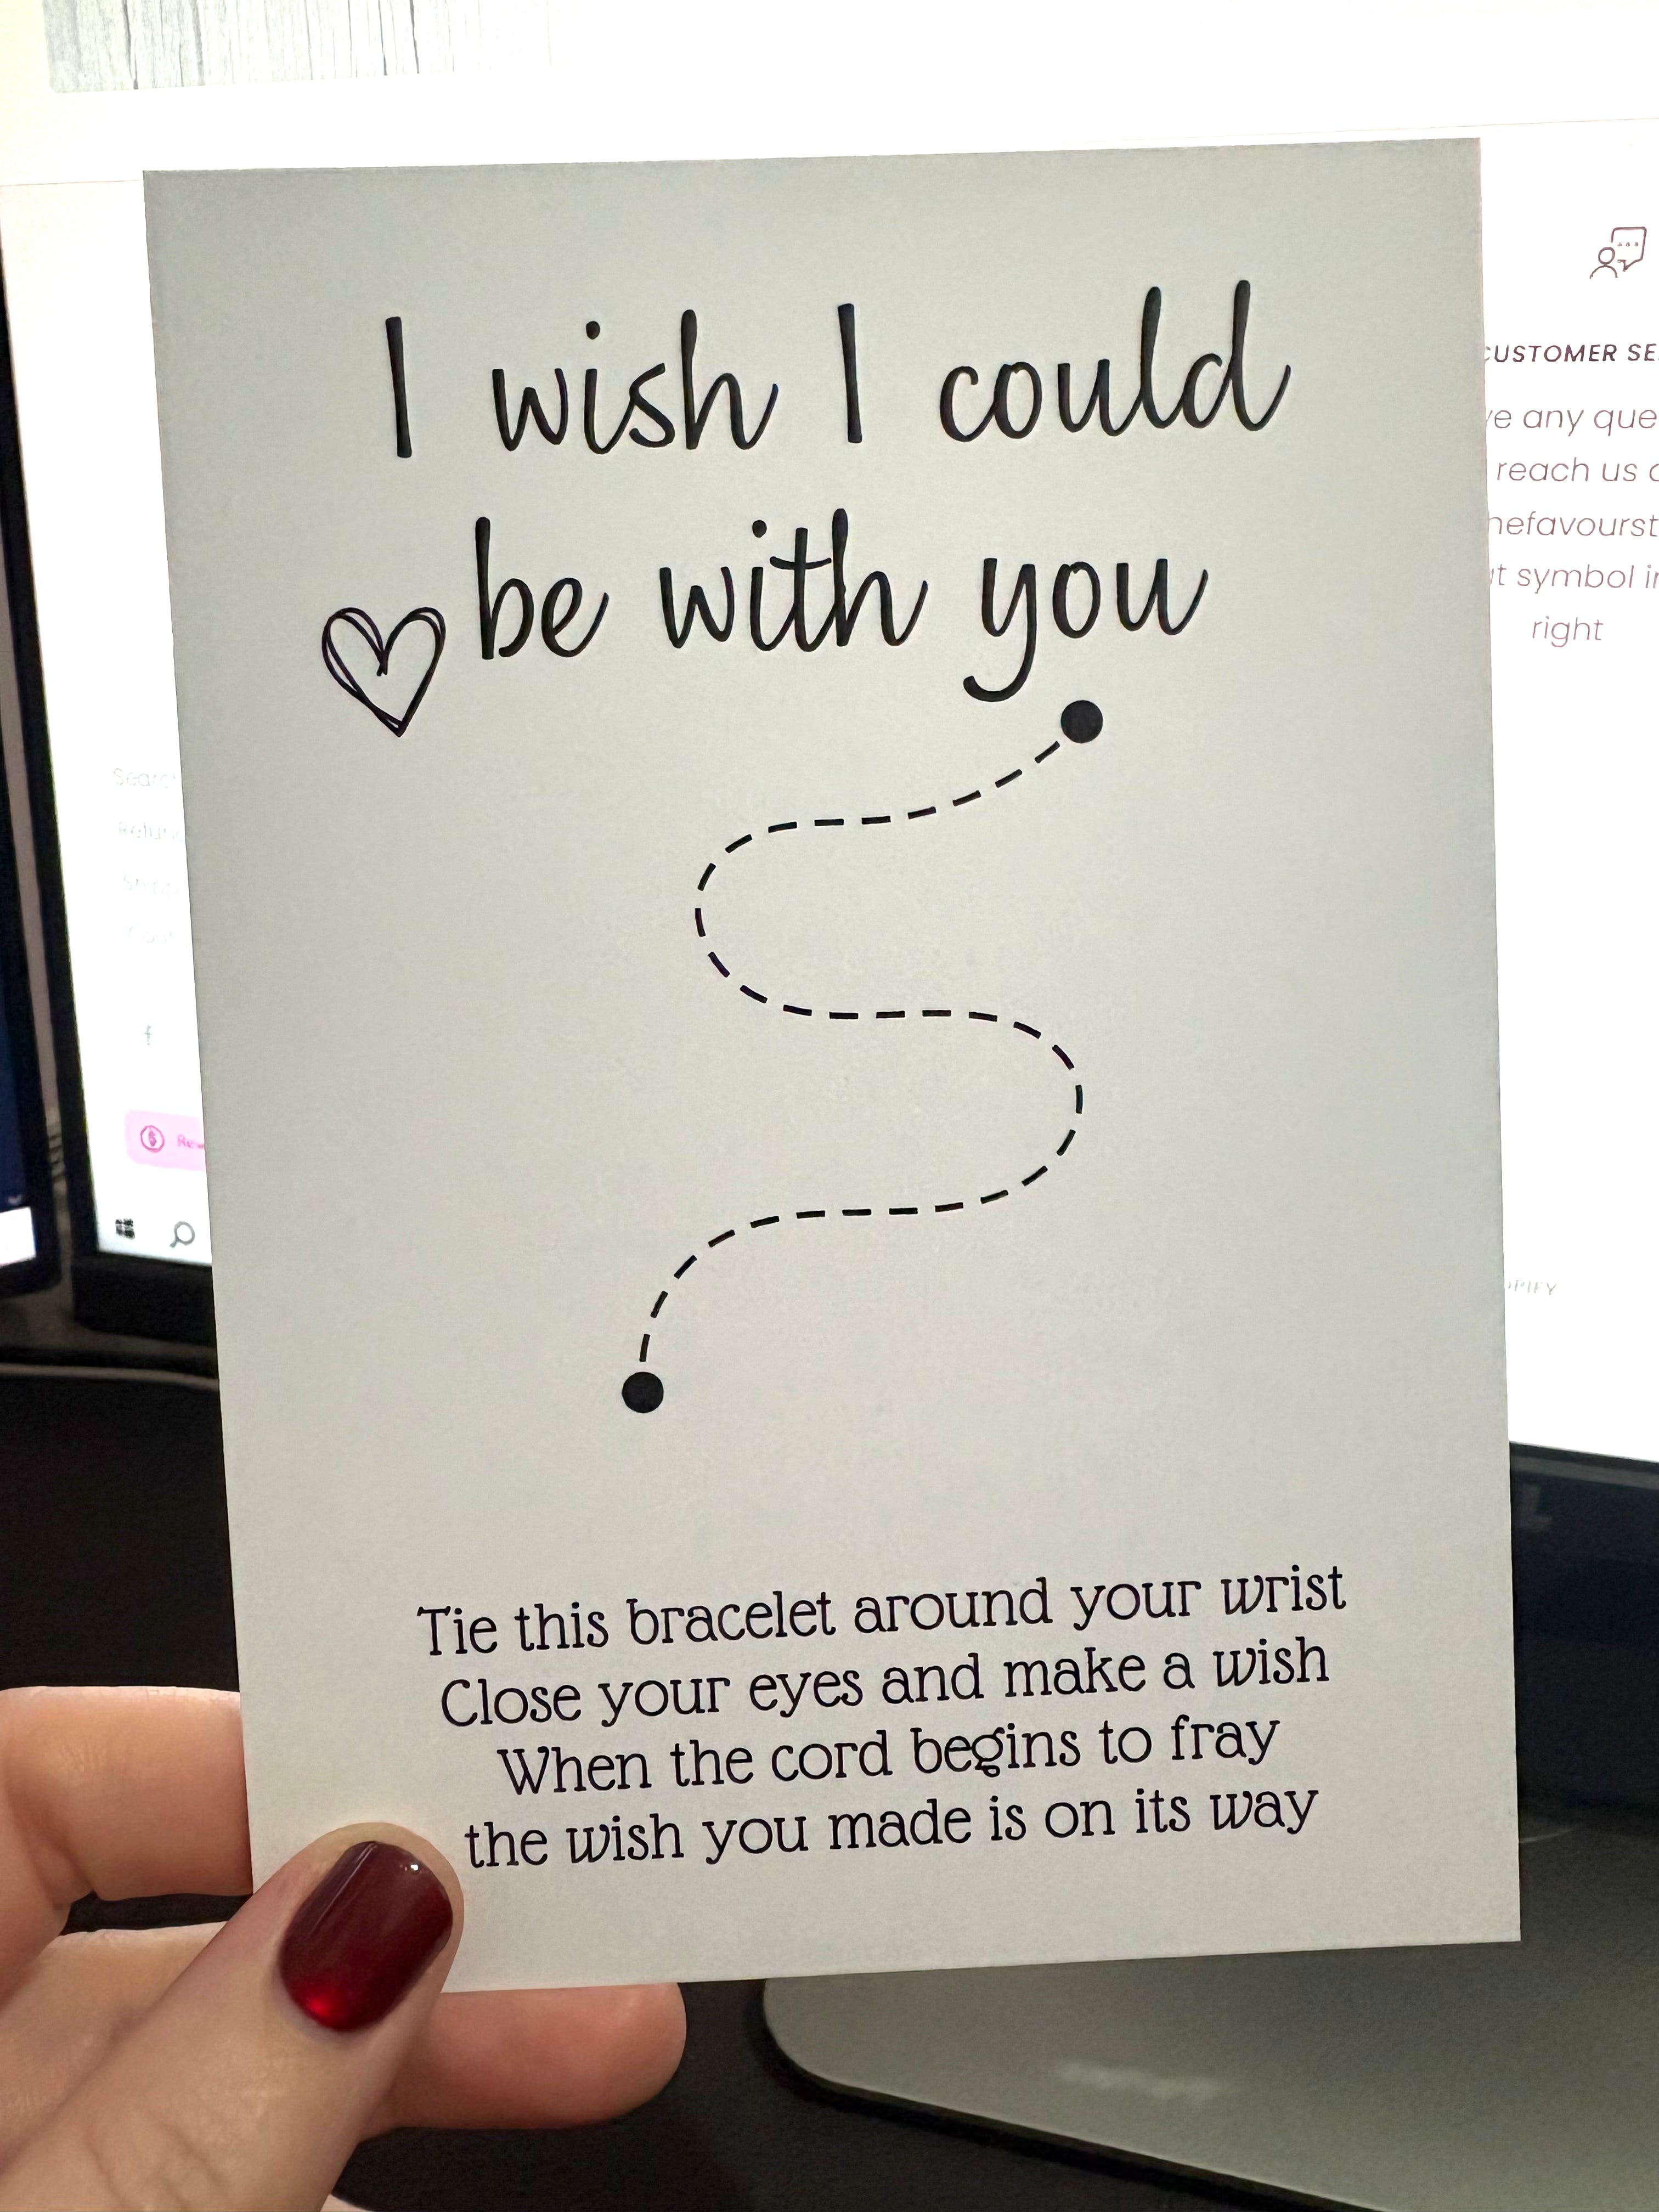 I wish I could
be with you
Tie this bracelet around your wrist
Close your eyes and make a wish
When the cord begins to fray
the wish you made is on its way
CUSTOMER
any
reach us
symbol
right